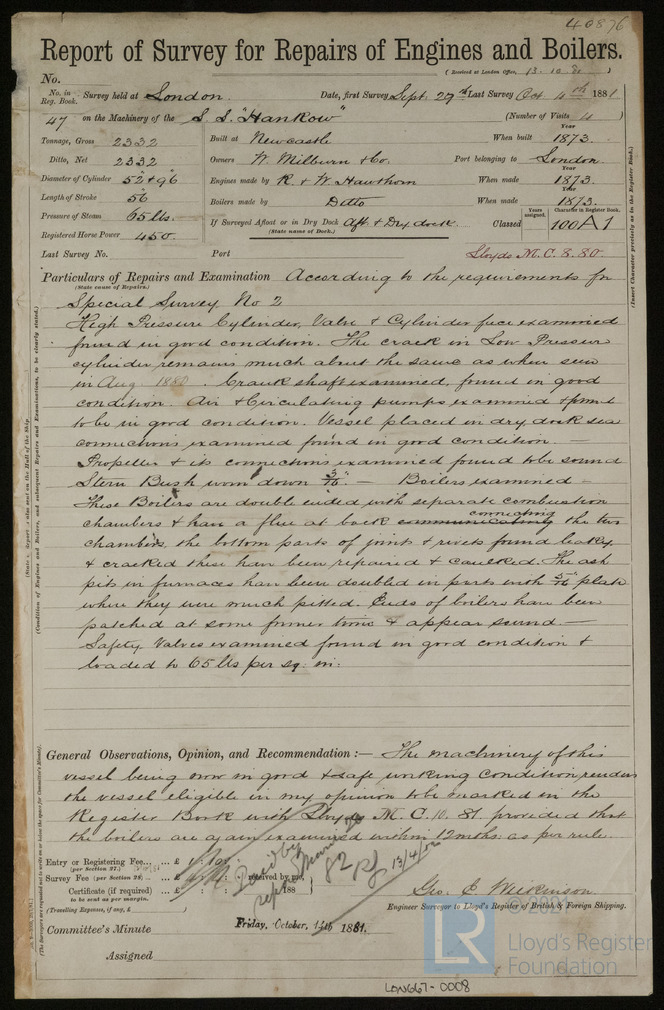 40876
Report of Survey for Repairs of Engines and Boilers.
(Received at London Office, 13-10-81)
No.
No. in Reg. Book. Survey held at London. Date, first Survey Sept. 27th Last Survey Oct 4th 1881
47 on the Machinery of the S.S. "Hankow" (Number of Visits 4)
Tonnage, Gross 2332 Built at Newcastle When built Year 1873.
Ditto, Net 2332 Owners W. Milburn & Co. Port belonging to London.
Diameter of Cylinder 52" & 96" Engines made by R. & W. Hawthorn When made Year 1873.
Length of Stroke 56" Boilers made by Ditto When made Year 1873.
Pressure of Steam 65 lbs. If Surveyed Afloat or in Dry Dock Aft. & Dry dock. Classed Years assigned. Character in Register Book. 100 A1
(State name of Dock.)
Registered Horse Power 450.
Last Survey No. Port Lloyds M.C. 8.80.
Particulars of Repairs and Examination According to the requirements for
(State cause of Repairs.)
Special Survey No 2
High Pressure Cylinder, Valve & Cylinder face examined
found in good condition. The crack in Low Pressure
cylinder remains much about the same as when seen
in Aug. 1880. Crank shaft examined, found in good
condition. Air & Circulating pumps examined & found
to be in good condition. Vessel placed in dry dock sea
connections examined found in good condition. —
Propeller & its connections examined found to be sound
Stern Bush worn down 3/16". — Boilers examined —
These Boilers are double ended with separate combustion
chambers & have a flue at back communicating connecting the two
chambers, the bottom parts of joint & rivets found leaky
& cracked these have been repaired & caulked. The ash
pits in furnaces have been doubled in parts with 5/16 plate
where they were much pitted. Ends of boilers have been
patched at some former time & appear sound. —
Safety Valves examined found in good condition &
loaded to 65 lbs per sq. in:
General Observations, Opinion, and Recommendation:— The machinery of this
vessel being now in good & safe working condition renders
the vessel eligible in my opinion to be marked in the
Register Book with Lloyds M.C. 10.81. provided that
the boilers are again examined within 12 mths. as per rule.
Entry or Registering Fee... ... £
(per Section 27.)
Survey Fee (per Section 28) ... £ received by me,
Certificate (if required) ... £ 188
to be sent as per margin.
(Travelling Expenses, if any, £ )
13/4/82
Geo. J. Wilkinson.
Engineer Surveyor to Lloyd's Register of British & Foreign Shipping.
Committee's Minute Friday, October, 14th 1881.
Assigned
(Insert Character precisely as in the Register Book.)
(Condition of Engines and Boilers, and subsequent Repairs and Examinations, to be clearly stated.)
© 2021
LR
Lloyd's Register
Foundation
LON667-0008